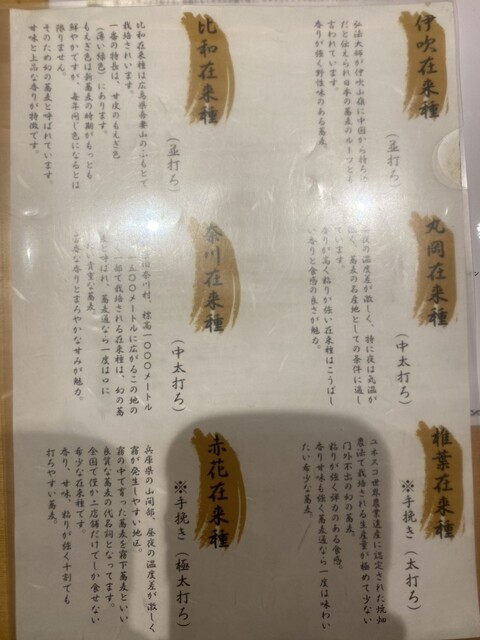 伊吹在来種
(並打ち)
弘法大師が伊吹山嶺に中国から持ち
だと伝えられ日本の蕎麦のルーツとも
言われています。
香りが強く野性味のある蕎麦。
比和在来種
(並打ち)
比和在来種は広島県吾妻山のふもとで
栽培されいます。
一番の特長は、甘皮のもえぎ色
(薄い緑色)にあります。
もえぎ色は新蕎麦の時期がもっとも
鮮やかですが、毎年同じ色になるとは
限りません。
そのため幻の蕎麦と呼ばれています。
甘味と上品な香りが特徴です。
丸岡在来種
(中太打ち)
夜の温度差が激しく、特に夜は気温が
く、蕎麦の名産地としての条件に適し
ています。
香りが高く粘りが強い在来種はこうばし
い香りと食感の良さが魅力。
奈川在来種
(中太打ち)
奈川村、標高1000メートル
1500メートルに広がるこの地の
一部で栽培される在来種は、幻の蕎
麦と呼ばれ、蕎麦通なら一度は口に
たい貴重な蕎麦。
芳香な香りとまろやかな甘みが魅力。
椎葉在来種
※手挽き(太打ち)
ユネスコ世界農業遺産に認定された焼畑
農法で栽培される生産量が極めて少ない
門外不出の幻の蕎麦。
粘りが強く弾力のある食感。
香り甘味も強く蕎麦通なら一度は味わい
たい希少な蕎麦。
赤花在来種
※手挽き(極太打ち)
兵庫県の山間部、昼夜の温度差が激しく
霧が発生しやすい地区。
霧の中で育った蕎麦を霧下蕎麦といい
良質な蕎麦の代名詞となってます。
全国で僅か二店舗だけでしか食せない
希少な在来種です。
香り、甘味、粘りが強く十割でも
打ちやすい蕎麦。